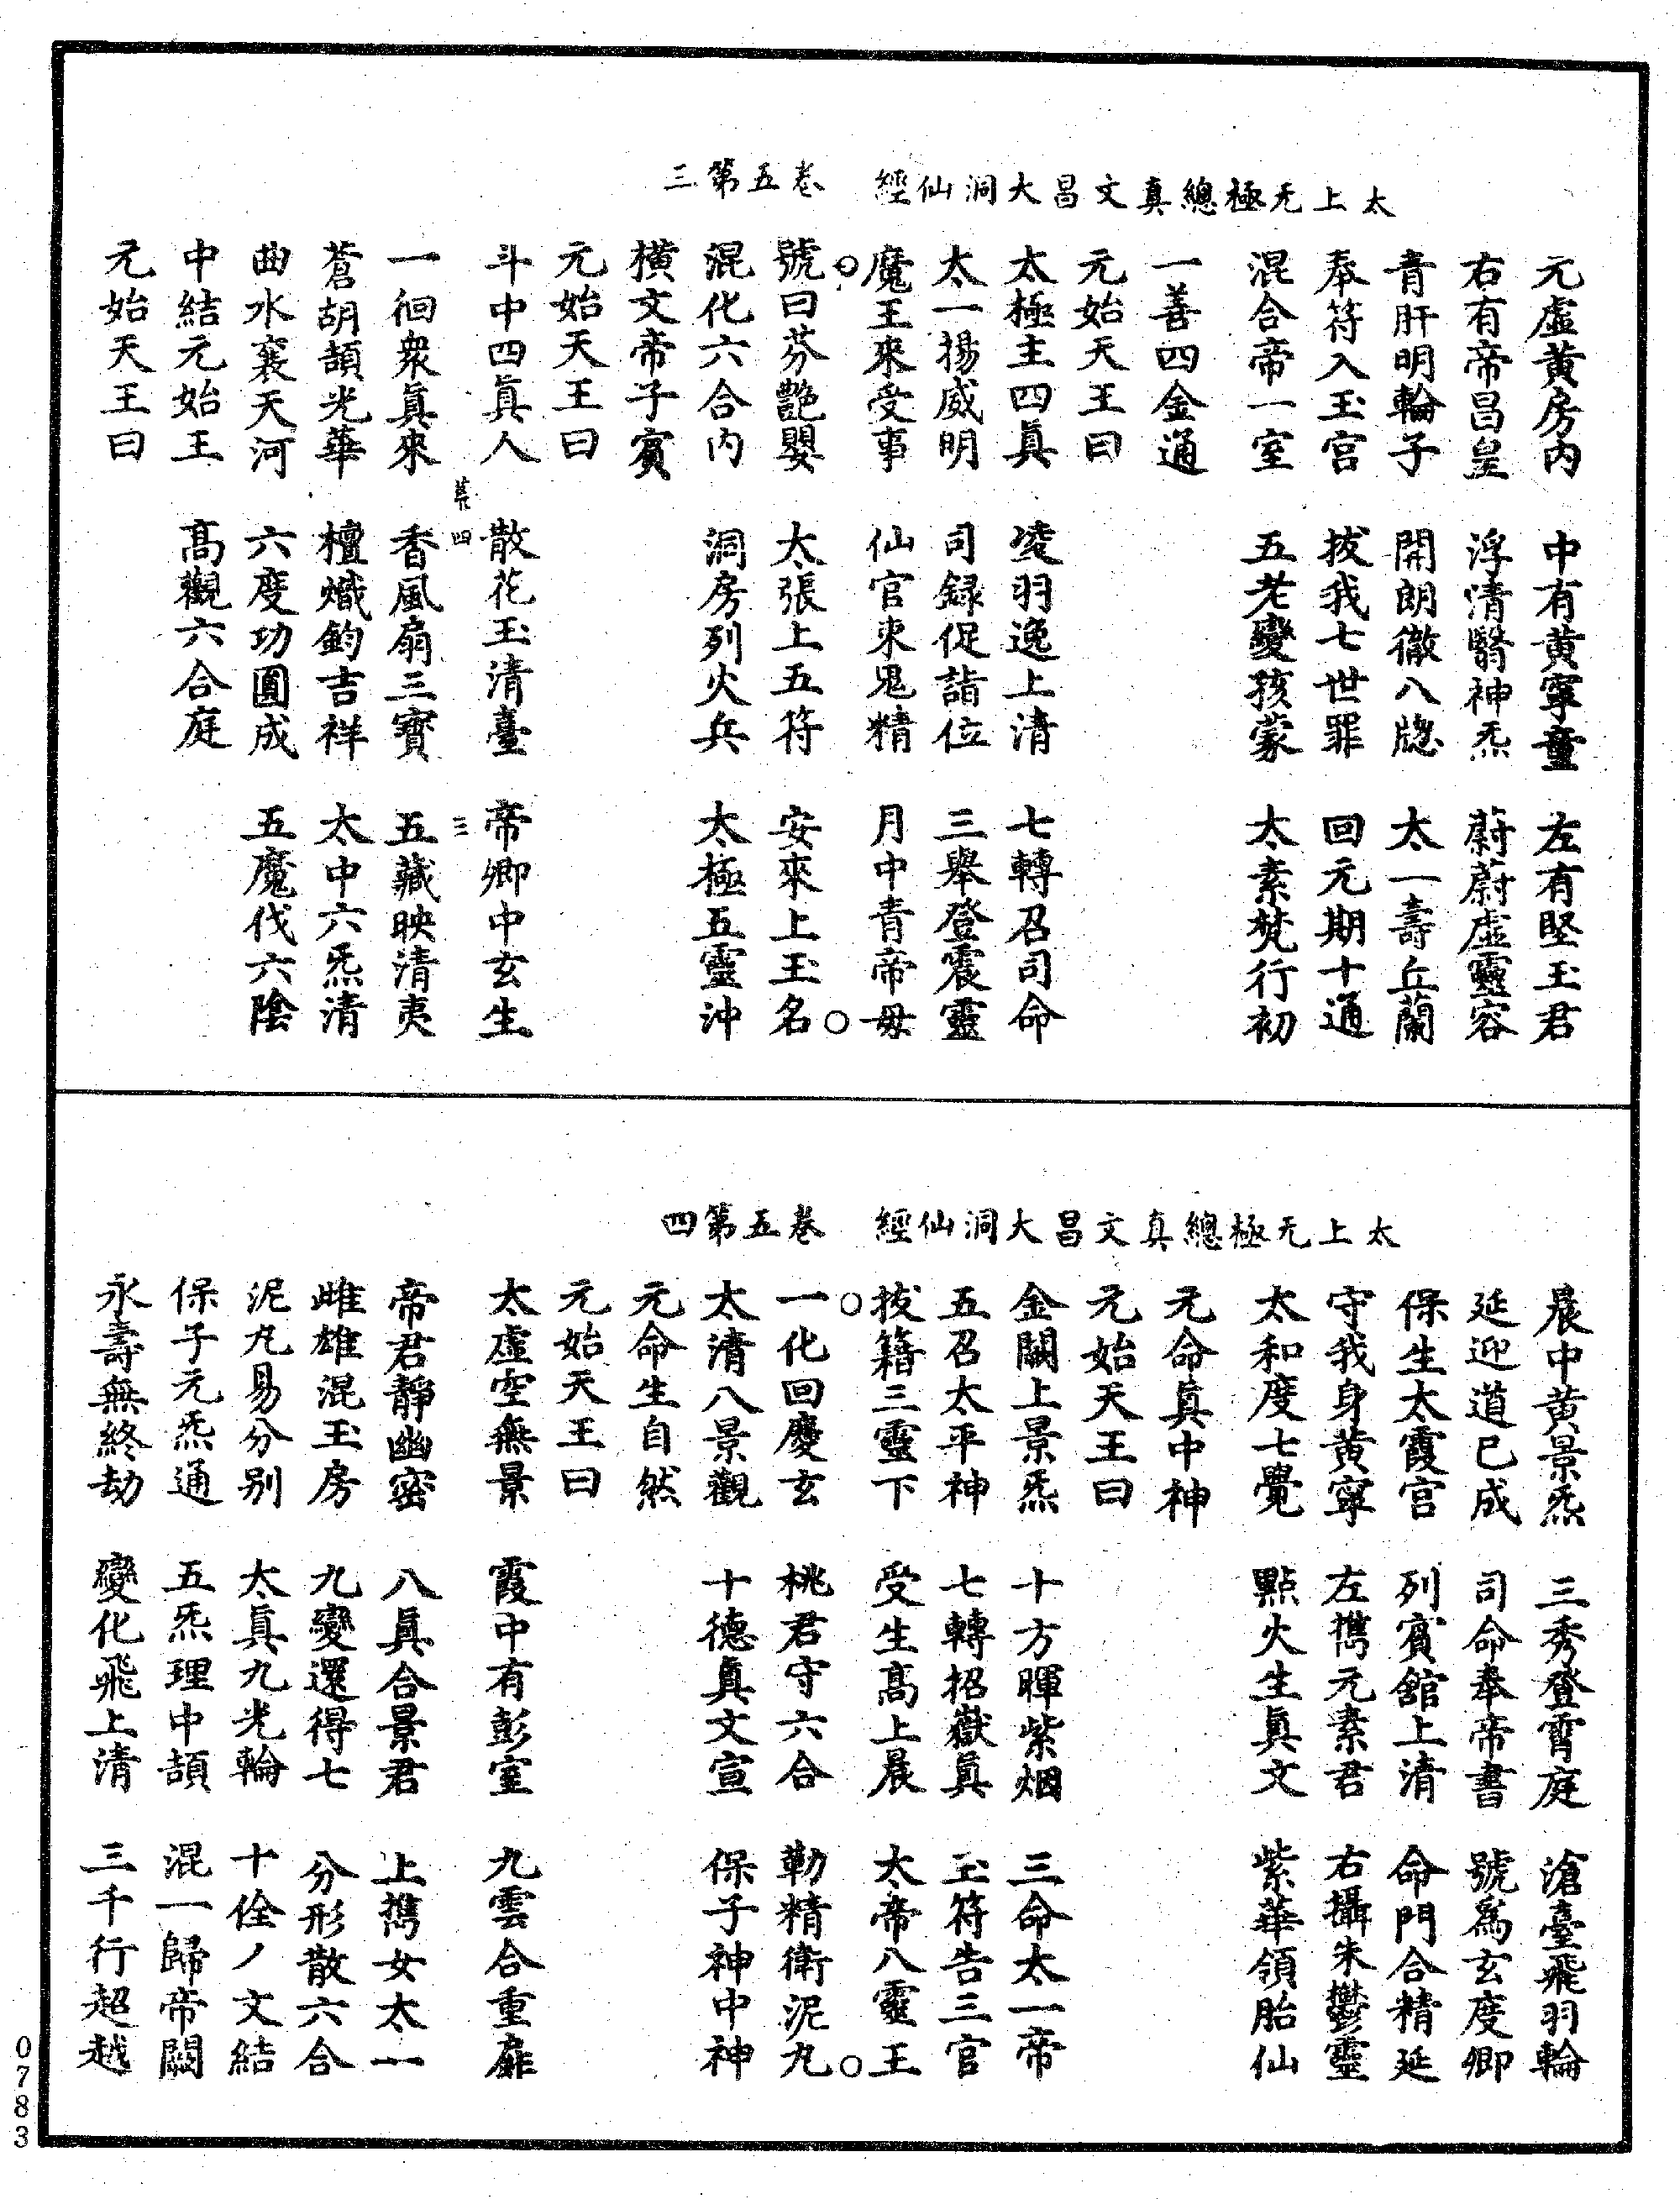 太上无極總真文昌大洞仙經 卷五第三
元虛黃房內 中有黃寧童 左有堅玉君
右有帝昌皇 浮清翳神炁 蔚蔚虛靈容
青肝明輪子 開朗徹八牕 太一壽丘蘭
奉符入玉宮 拔我七世罪 回元期十通
混合帝一室 五老變孩蒙 太素梵行初
一善四金通
元始天王曰
太極主四眞 凌羽逸上清 七轉召司命
太一揚威明 司録促詣位 三舉登震靈
魔王來受事 仙官束鬼精 月中青帝母
號曰芬艷嬰 太張上五符 安來上玉名
混化六合內 洞房列火兵 太極五靈沖
橫文帝子賓
元始天王曰
斗中四眞人 散花玉清臺 帝卿中玄生
四 三
一徊衆眞來 香風扇三寶 五藏映清夷
蒼胡頡光華 檀熾鈞吉祥 太中六炁清
曲水襄天河 六度功圓成 五魔伐六陰
中結元始王 高觀六合庭
元始天王曰
太上无極總真文昌大洞仙經 卷五第四
晨中黃景炁 三秀登霄庭 滄臺飛羽輪
延迎道已成 司命奉帝書 號爲玄度卿
保生太霞宮 列賓館上清 命門合精延
守我身黃寧 左攜元素君 右攝朱鬱靈
太和度七覺 點火生眞文 紫華領胎仙
元命眞中神
元始天王曰
金闕上景炁 十方暉紫烟 三命太一帝
五召太平神 七轉招嶽眞 玉符告三官
拔籍三靈下 受生高上晨 太帝八靈王
一化回慶玄 桃君守六合 勒精衛泥丸
太清八景觀 十德眞文宣 保子神中神
元命生自然
元始天王曰
太虛空無景 霞中有彭室 九雲合重扉
帝君靜幽密 八眞合景君 上攜女太一
雌雄混玉房 九變還得七 分形散六合
泥丸易分别 太眞九光輪 十佺ノ文結
保子元炁通 五炁理中頡 混一歸帝闕
永壽無終劫 變化飛上清 三千行超越
0783